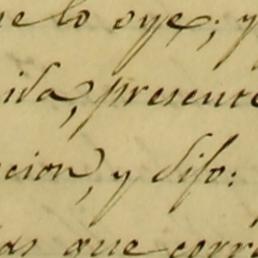 e lo oye; y
ida, presente
cion, y dijo:
as que corr